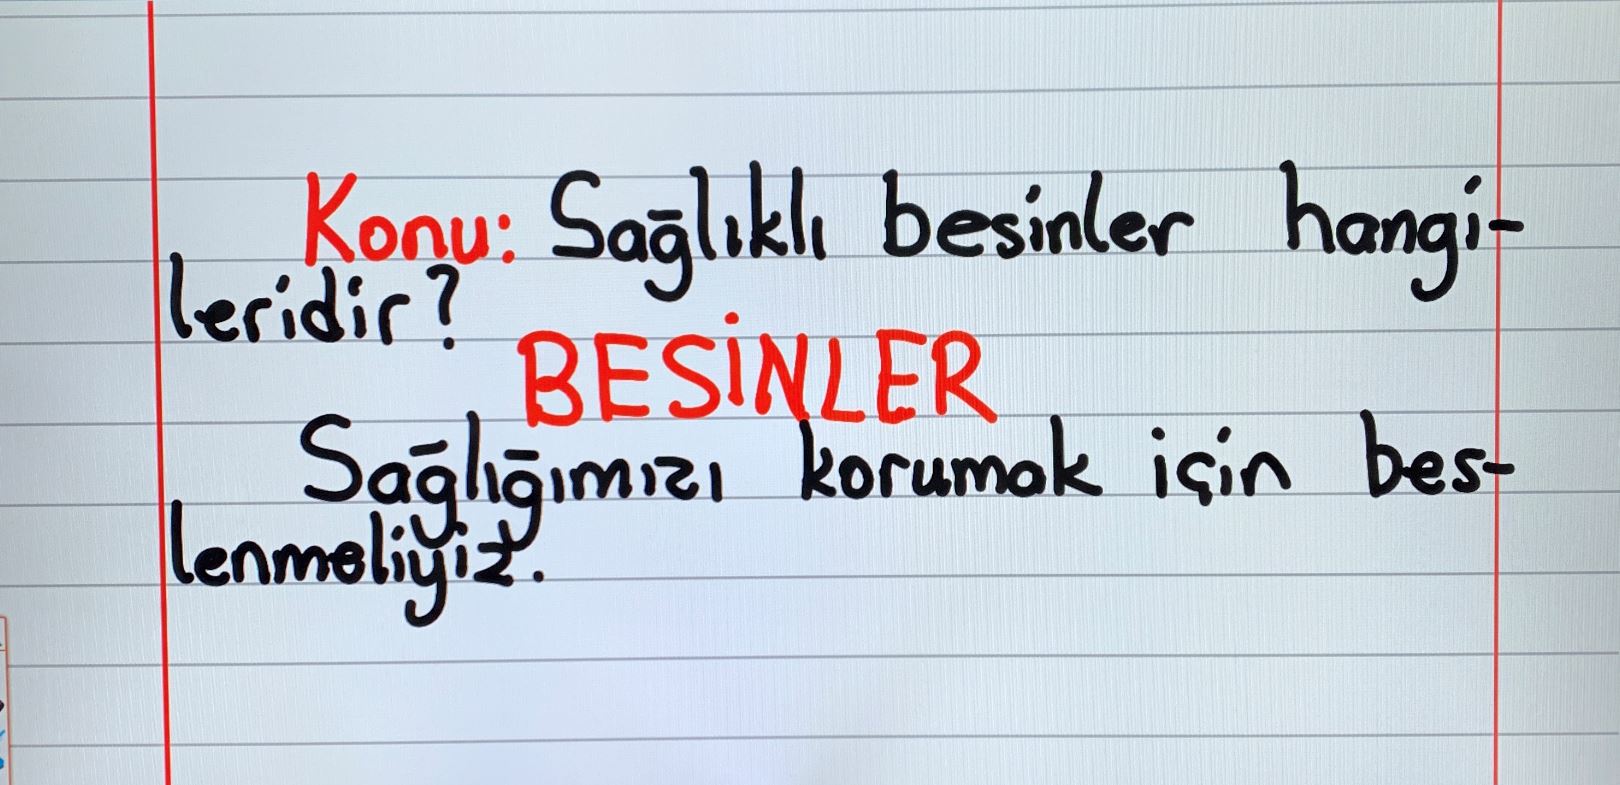 Konu: Sağlıklı besinler hangi-
leridir?
BESİNLER
Sağlığımızı korumak için bes-
lenmeliyiz.